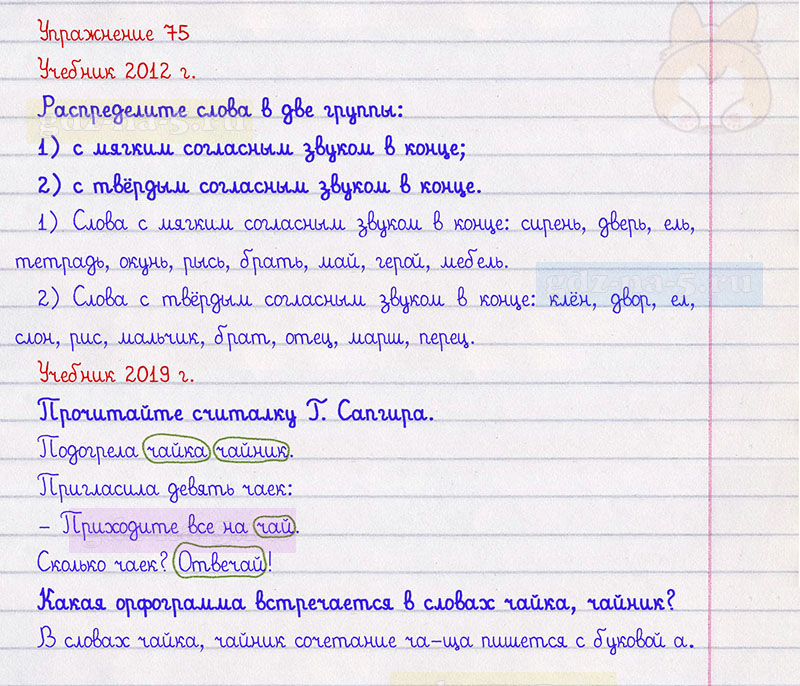 Упражнение 75
Учебник 2012 г.
Распределите слова в две группы:
1) с мягким согласным звуком в конце;
2) с твёрдым согласным звуком в конце.
1) Слова с мягким согласным звуком в конце: сирень, дверь, ель,
тетрадь, окунь, рысь, брать, май, герой, мебель.
gdz-na-5.ru
2) Слова с твёрдым согласным звуком в конце: клён, двор, ел,
слон, рис, мальчик, брат, отец, марш, перец.
Учебник 2019 г.
Прочитайте считалку Г. Сапгира.
Подогрела чайка чайник.
Пригласила девять чаек:
– Приходите все на чай.
Сколько чаек? Отвечай!
Какая орфограмма встречается в словах чайка, чайник?
В словах чайка, чайник сочетание ча–ща пишется с буковой а.